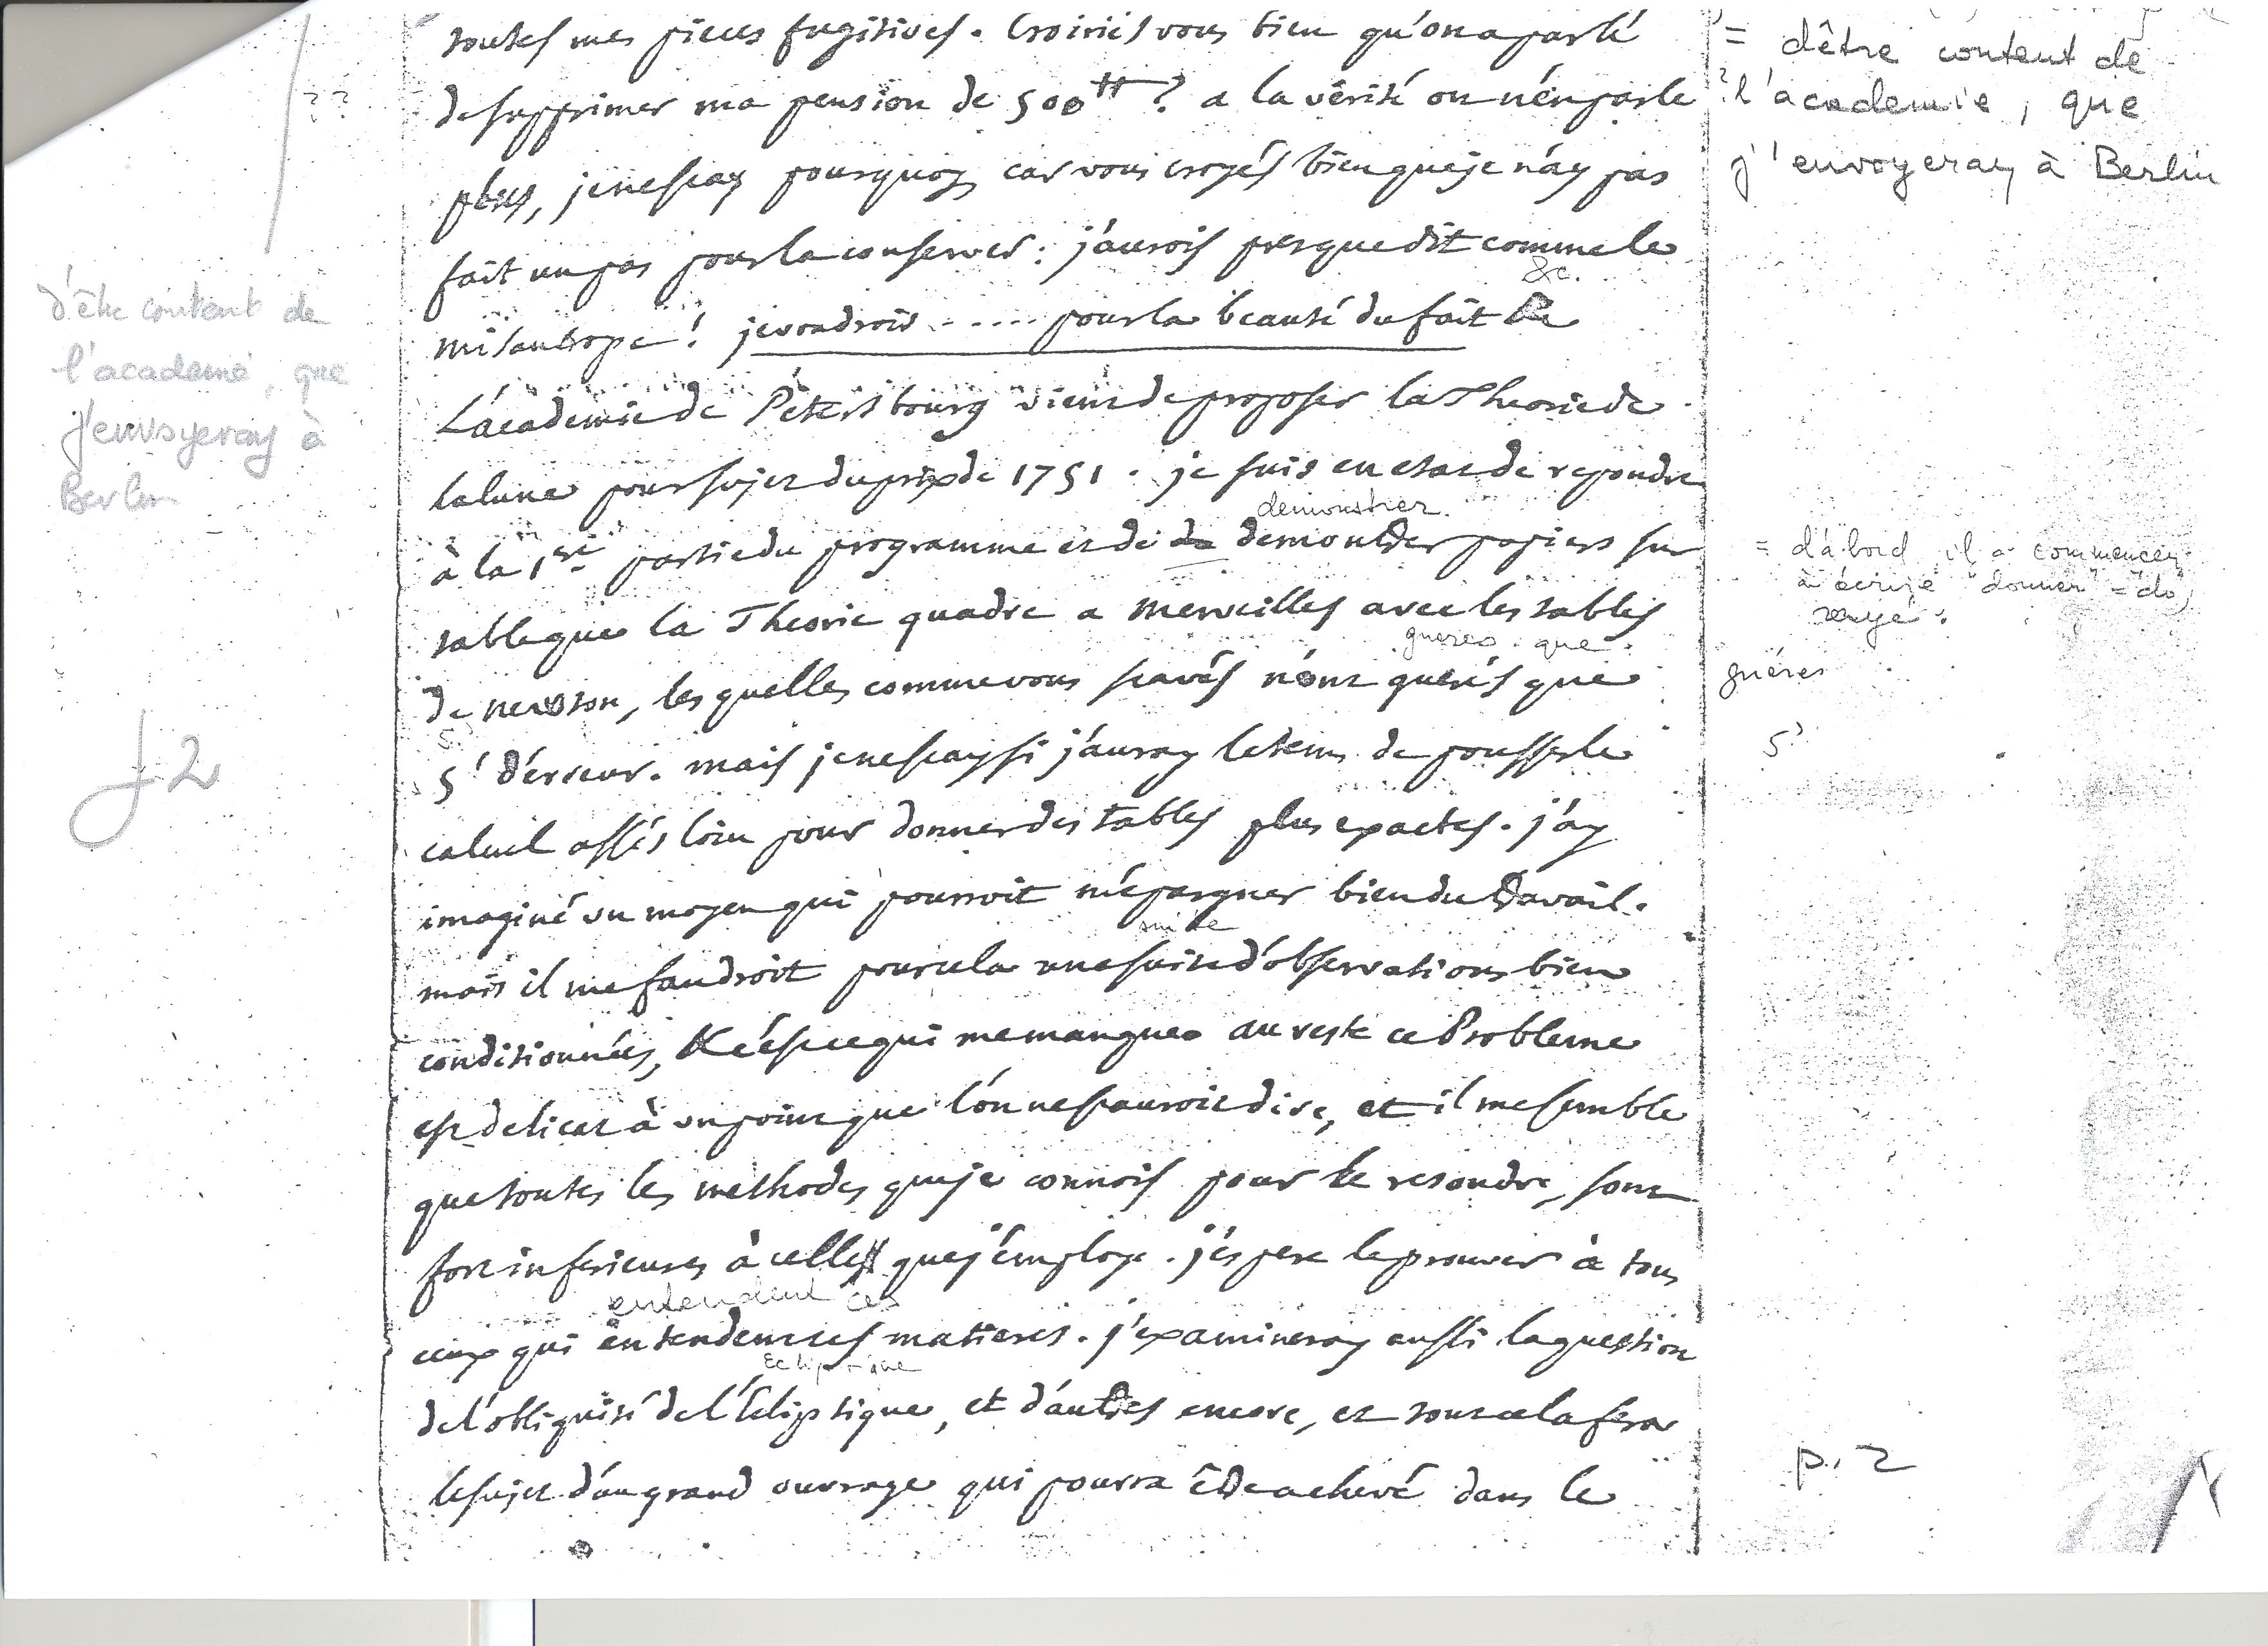 toutes mes pieces fugitives. Croiriés vous bien qu'on a parlé
de supprimer ma pension de 500 ₶? a la vérité on n'en parle
plus, je ne scay pourquoy, car vous croyés bien que je n'ay pas
fait un pas pour la conserver: j'aurois presque dit comme le
&c.
misantrope! je voudrois ..... pour la beauté du fait
L'académie de Petersbourg vient de proposer la Theorie de
la lune pour sujet du prix de 1751. je suis en etat de repondre
demonstrer
à la 1ere partie du programme et de do demontrer papiers sur
table que la Theorie quadre a merveilles avec les tables
gueres que
de newton, les quelles comme vous scavés n'ont guerés que
5' d'erreur. mais je ne scay si j'auray le tems de pousser le
calcul assés loin pour donner des tables plus exactes. j'ay
imaginé un moyen qui pourroit m'épargner bien du travail.
suite
mais il me faudroit pour cela une suite d'observations bien
conditionnées, & c'est ce qui me manque. au reste ce Probleme
est delicat à un point que l'on ne scauroit dire, et il me semble
que toutes les methodes que je connois pour le resoudre, sont
fort inferieures à celle que j'employe. j'espere le prouver à tous
entendent ces
ceux qui entendent ces matieres. j'examineray aussi la question
Ecliptique
de l'obliquité de l'Ecliptique, et d'autres encore, et tout cela fera
le sujet d'un grand ouvrage qui pourra être achevé dans le
??
d'être content de
l'academie, que
j'envoyeray à
Berlin
f2
= d'être content de
l'academie, que
j'envoyeray à Berlin
= d'abord il a commencer
à écrire "donner" = do
rayé.
guéres
5'
p. 2